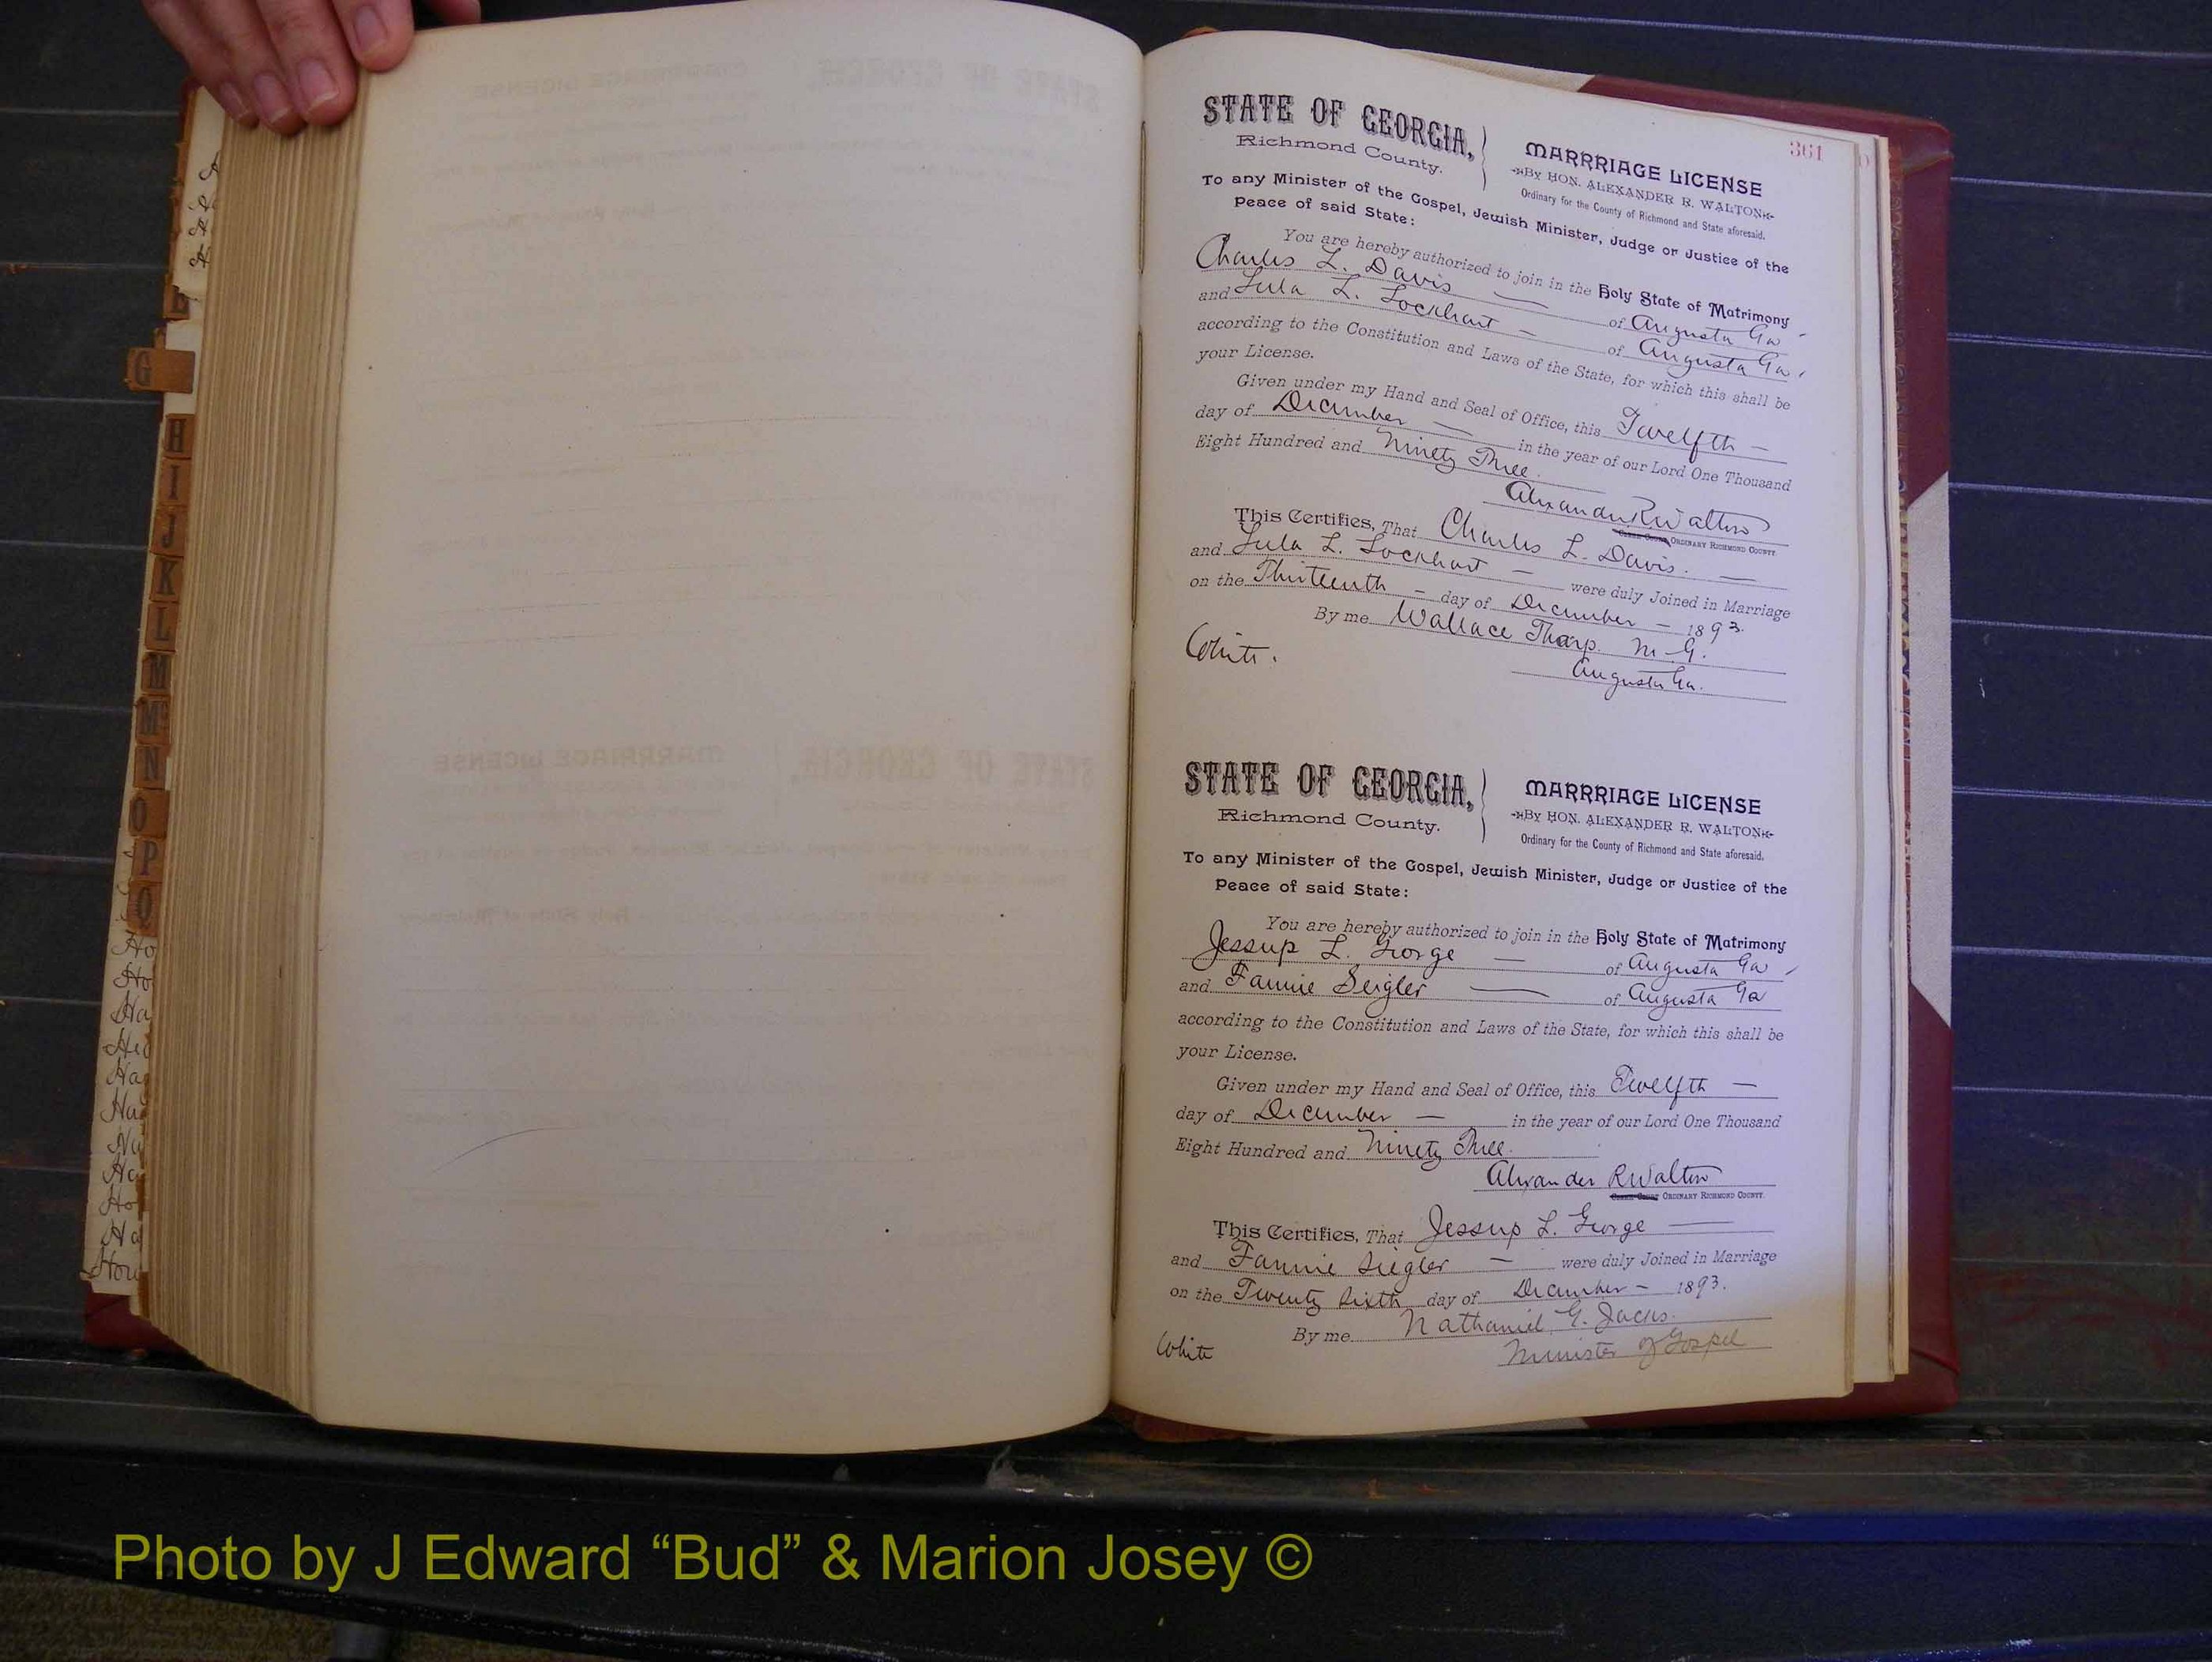 361
STATE OF GEORGIA,
Richmond County.
MARRRIAGE LICENSE
By HON. ALEXANDER R. WALTON
Ordinary for the County of Richmond and State aforesaid.
To any Minister of the Gospel, Jewish Minister, Judge or Justice of the
Peace of said State:
You are hereby authorized to join in the Holy State of Matrimony
Charles L. Davis — of Augusta Ga
and Lula L. Lockhart — of Augusta Ga.
according to the Constitution and Laws of the State, for which this shall be
your License.
Given under my Hand and Seal of Office, this Twelfth —
day of December — in the year of our Lord One Thousand
Eight Hundred and Ninety Three.
Alexander R Walton
ORDINARY RICHMOND COUNTY.
This Certifies, That Charles L. Davis. —
and Lula L. Lockhart — were duly Joined in Marriage
on the Thirteenth — day of December — 1893.
By me Wallace Tharp. M. G.
White. Augusta Ga.
STATE OF GEORGIA,
Richmond County.
MARRRIAGE LICENSE
By HON. ALEXANDER R. WALTON
Ordinary for the County of Richmond and State aforesaid.
To any Minister of the Gospel, Jewish Minister, Judge or Justice of the
Peace of said State:
You are hereby authorized to join in the Holy State of Matrimony
Jessup L. George — of Augusta Ga
and Fannie Seigler — of Augusta Ga
according to the Constitution and Laws of the State, for which this shall be
your License.
Given under my Hand and Seal of Office, this Twelfth —
day of December — in the year of our Lord One Thousand
Eight Hundred and Ninety Three.
Alexander R Walton
ORDINARY RICHMOND COUNTY.
This Certifies, That Jessup L. George —
and Fannie Siegler — were duly Joined in Marriage
on the Twenty Sixth day of December — 1893.
By me Nathaniel G.
White Minister of Gospel
G
H
I
J
K
L
M
Mc
N
O
P
Q
Photo by J Edward “Bud” & Marion Josey ©